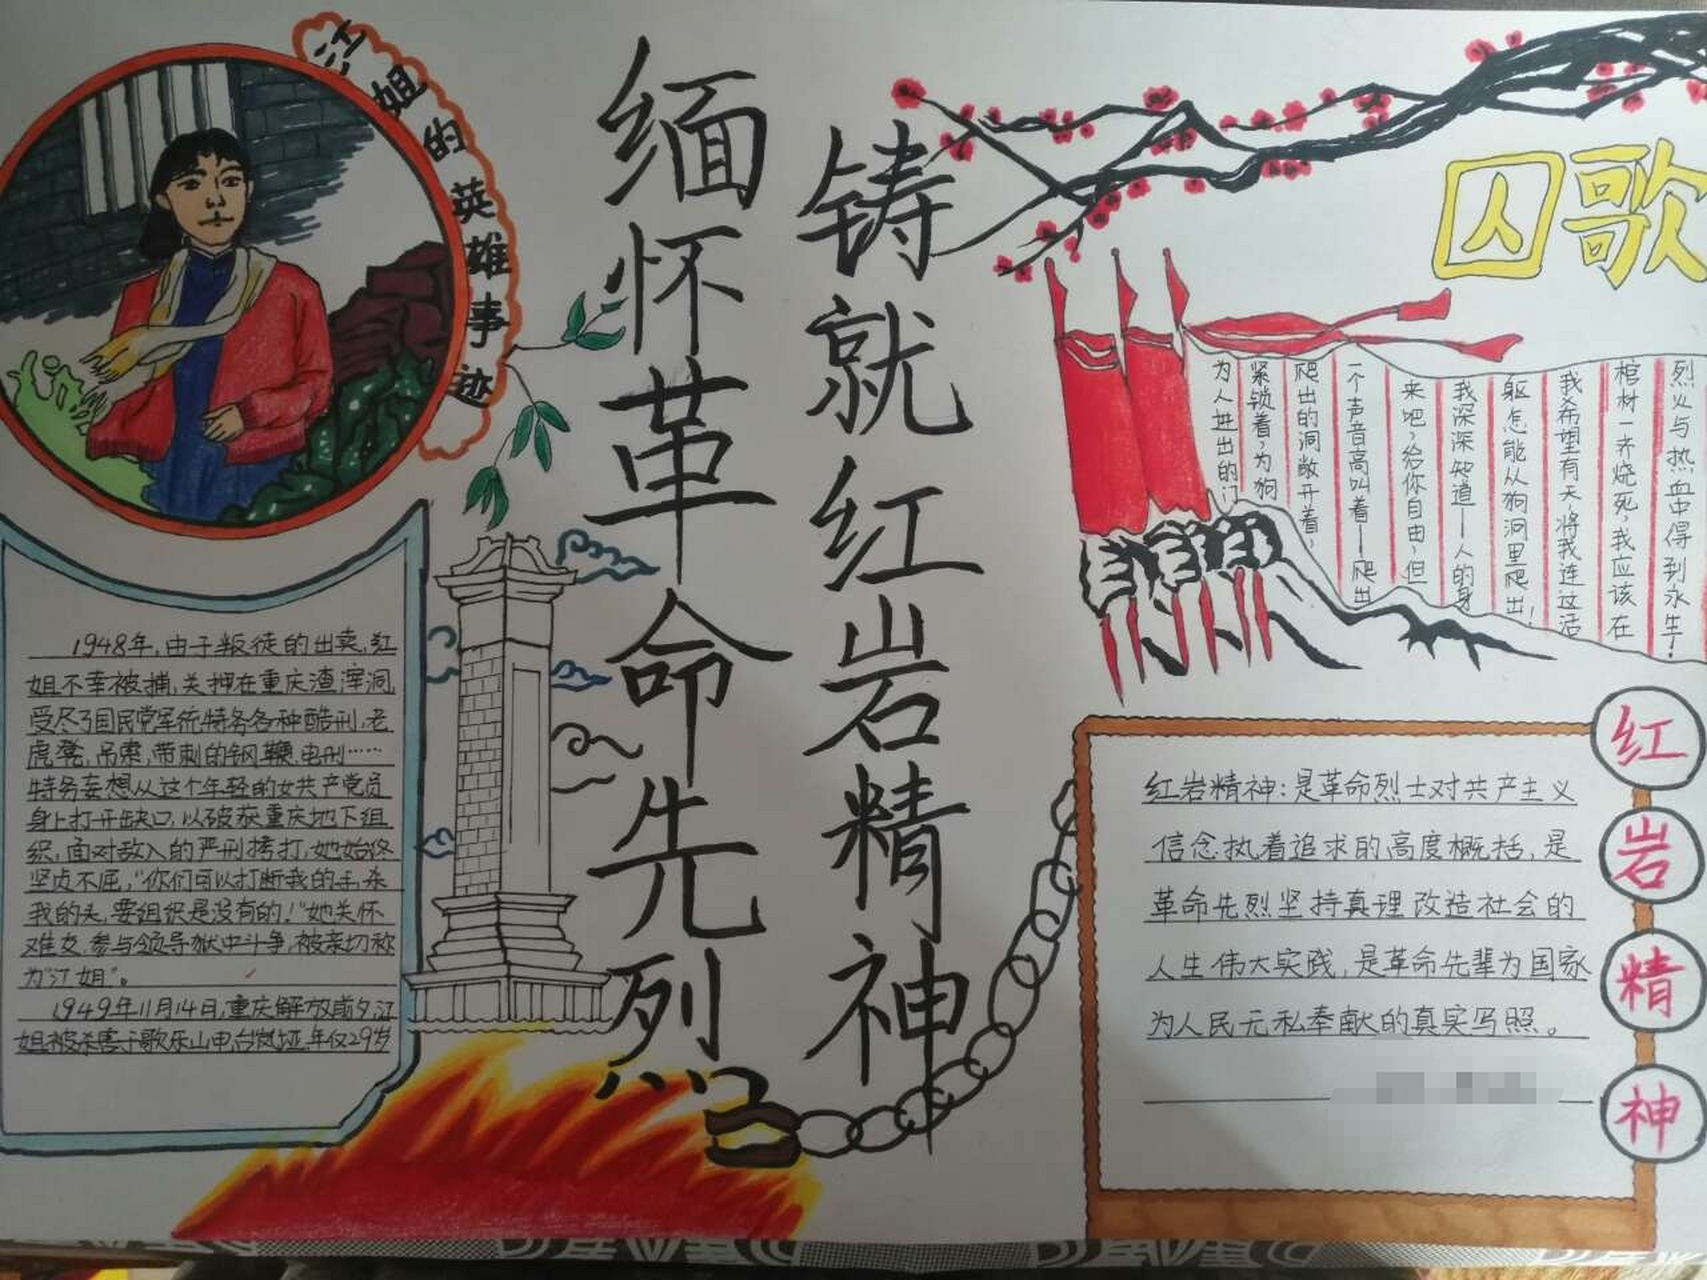 江姐的英雄事迹
1948年,由于叛徒的出卖,江
姐不幸被捕,关押在重庆渣滓洞,
受尽了国民党军统特务各种酷刑,老
虎凳,吊索,带刺的钢鞭,电刑……
特务妄想从这个年轻的女共产党员
身上打开缺口,以破获重庆地下组
织,面对敌人的严刑拷打,她始终
坚贞不屈,"你们可以打断我的手,杀
我的头,要组织是没有的!"她关怀
难友,参与领导狱中斗争,被亲切称
为"江姐"。
1949年11月14日,重庆解放前夕,江
姐被杀害于歌乐山电台岚垭,年仅29岁
缅怀革命先烈
铸就红岩精神
囚歌
为人进出的门
紧锁着,为狗
爬出的洞敞开着,
一个声音高叫着—爬出
来吧,给你自由,但
我深深知道—人的身
躯怎能从狗洞里爬出!
我希望有天,将我连这活
棺材一齐烧死,我应该在
烈火与热血中得到永生!
红岩精神:是革命烈士对共产主义
信念执着追求的高度概括,是
革命先烈坚持真理改造社会的
人生伟大实践,是革命先辈为国家
为人民无私奉献的真实写照。
红
岩
精
神